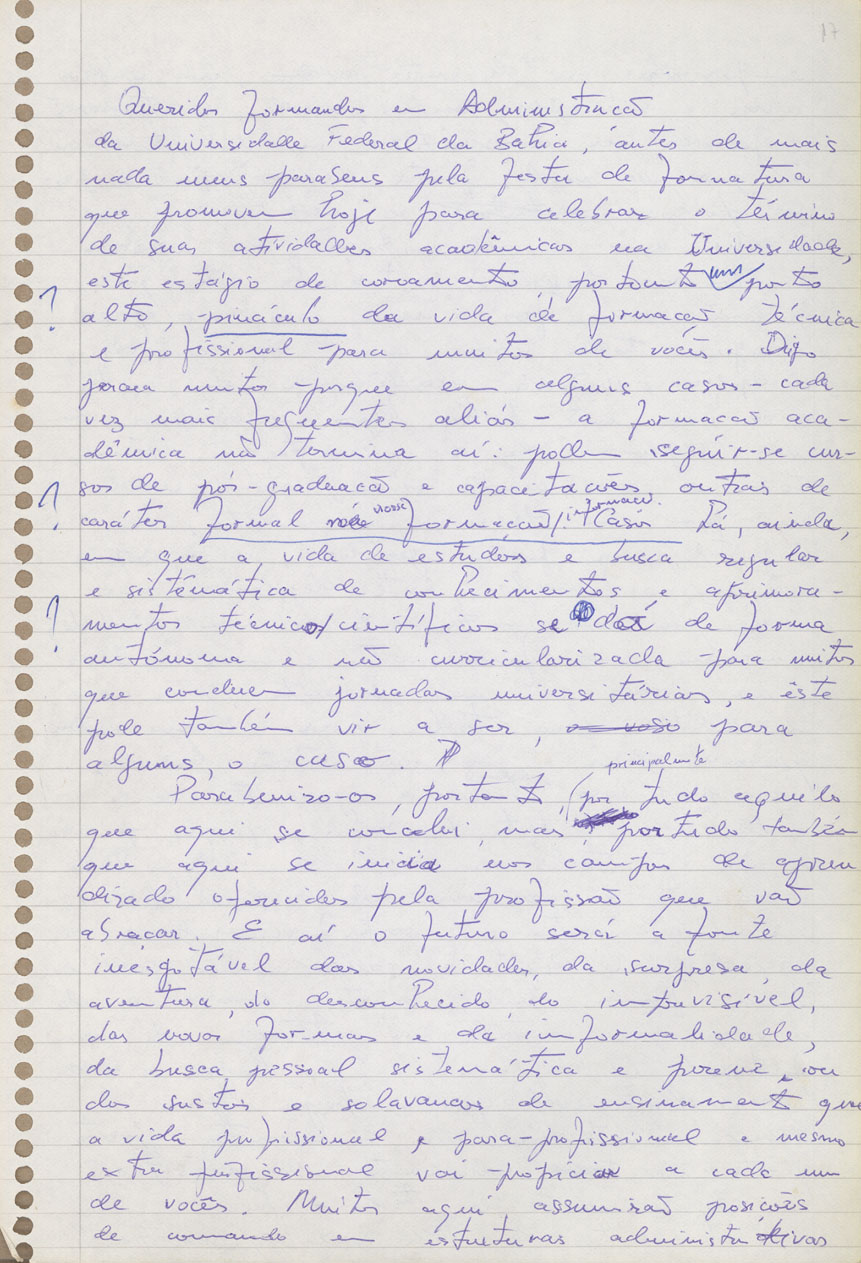 17
Queridos formandos em Administração
da Universidade Federal da Bahia, antes de mais
nada meus parabens pela festa de formatura
que promovem hoje para celebrar o término
de suas atividades acadêmicas na Universidade,
este estágio de coroamento, portanto um ponto
? alto, pináculo da vida de formação técnica
e profissional para muitos de vocês. Digo
para muitos porque em alguns casos - cada
vez mais frequentes aliás - a formação aca-
dêmica não termina aí: podem seguir-se cur-
sos de pós-graduação e capacitações outras de
? caráter formal nossa formação/informação. Casos há, ainda,
em que a vida de estudos e busca regular
e sistemática de conhecimentos e aprimora-
? mentos técnico/científicos se dá de forma
autónoma e não curricularizada para muitos
que concluem jornadas universitárias, e êste
pode também vir a ser, o vosso para
alguns, o caso.
Parabenizo-os, portanto, principalmente por tudo aquilo
que aqui se conclui, mas, por tudo também
que aqui se inicia nos campos de apren
dizado oferecidos pela profissão que vão
abraçar. E aí o futuro será a fonte
inesgotável das novidades, da surpresa, da
aventura, do desconhecido, do imprevisível,
das novas formas e da informalidade,
da busca pessoal sistemática e perene, ou
dos sustos e solavancos de ensinamento que
a vida profissional e para-profissional e mesmo
extra profissional vai propiciar a cada um
de vocês. Muitos aqui assumirão posições
de comando em estruturas administrativas